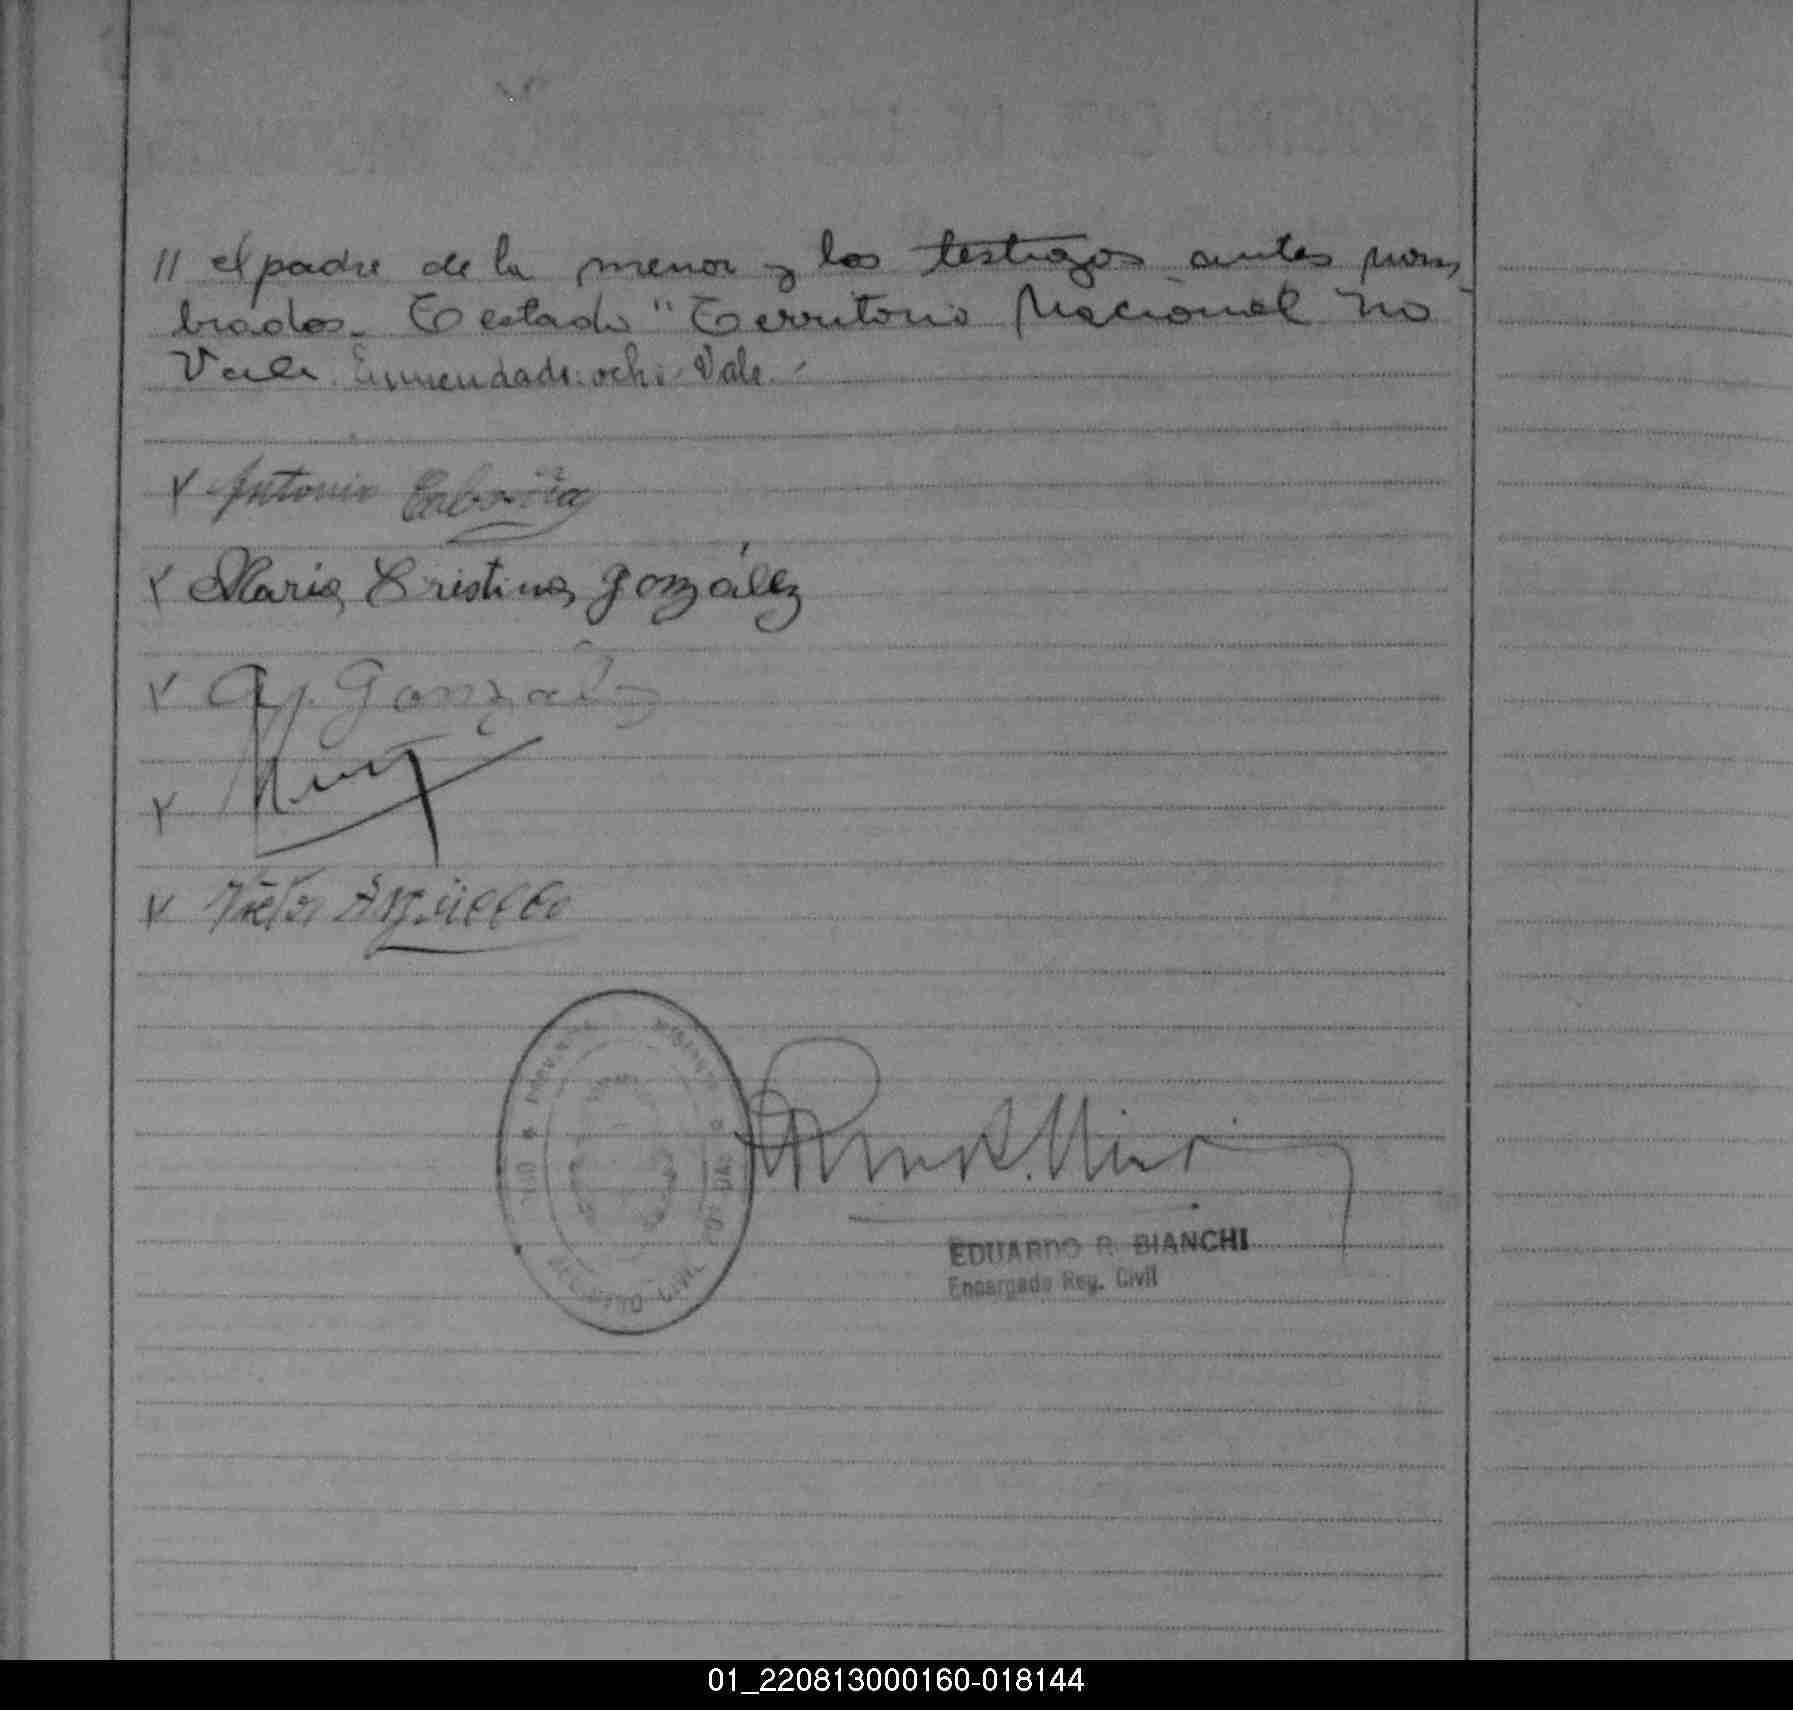 // el padre de la menor y los testigos antes nom-
brados.- Testado "Territorio Nacional no
Vale. Enmendado: ocho Vale.-
Antonio
Maria Cristina González
Ag. González
Victor Argüello
PROVINCIA
REGISTRO CIVIL
EDUARDO R. BIANCHI
Encargado Reg. Civil
01_220813000160-018144